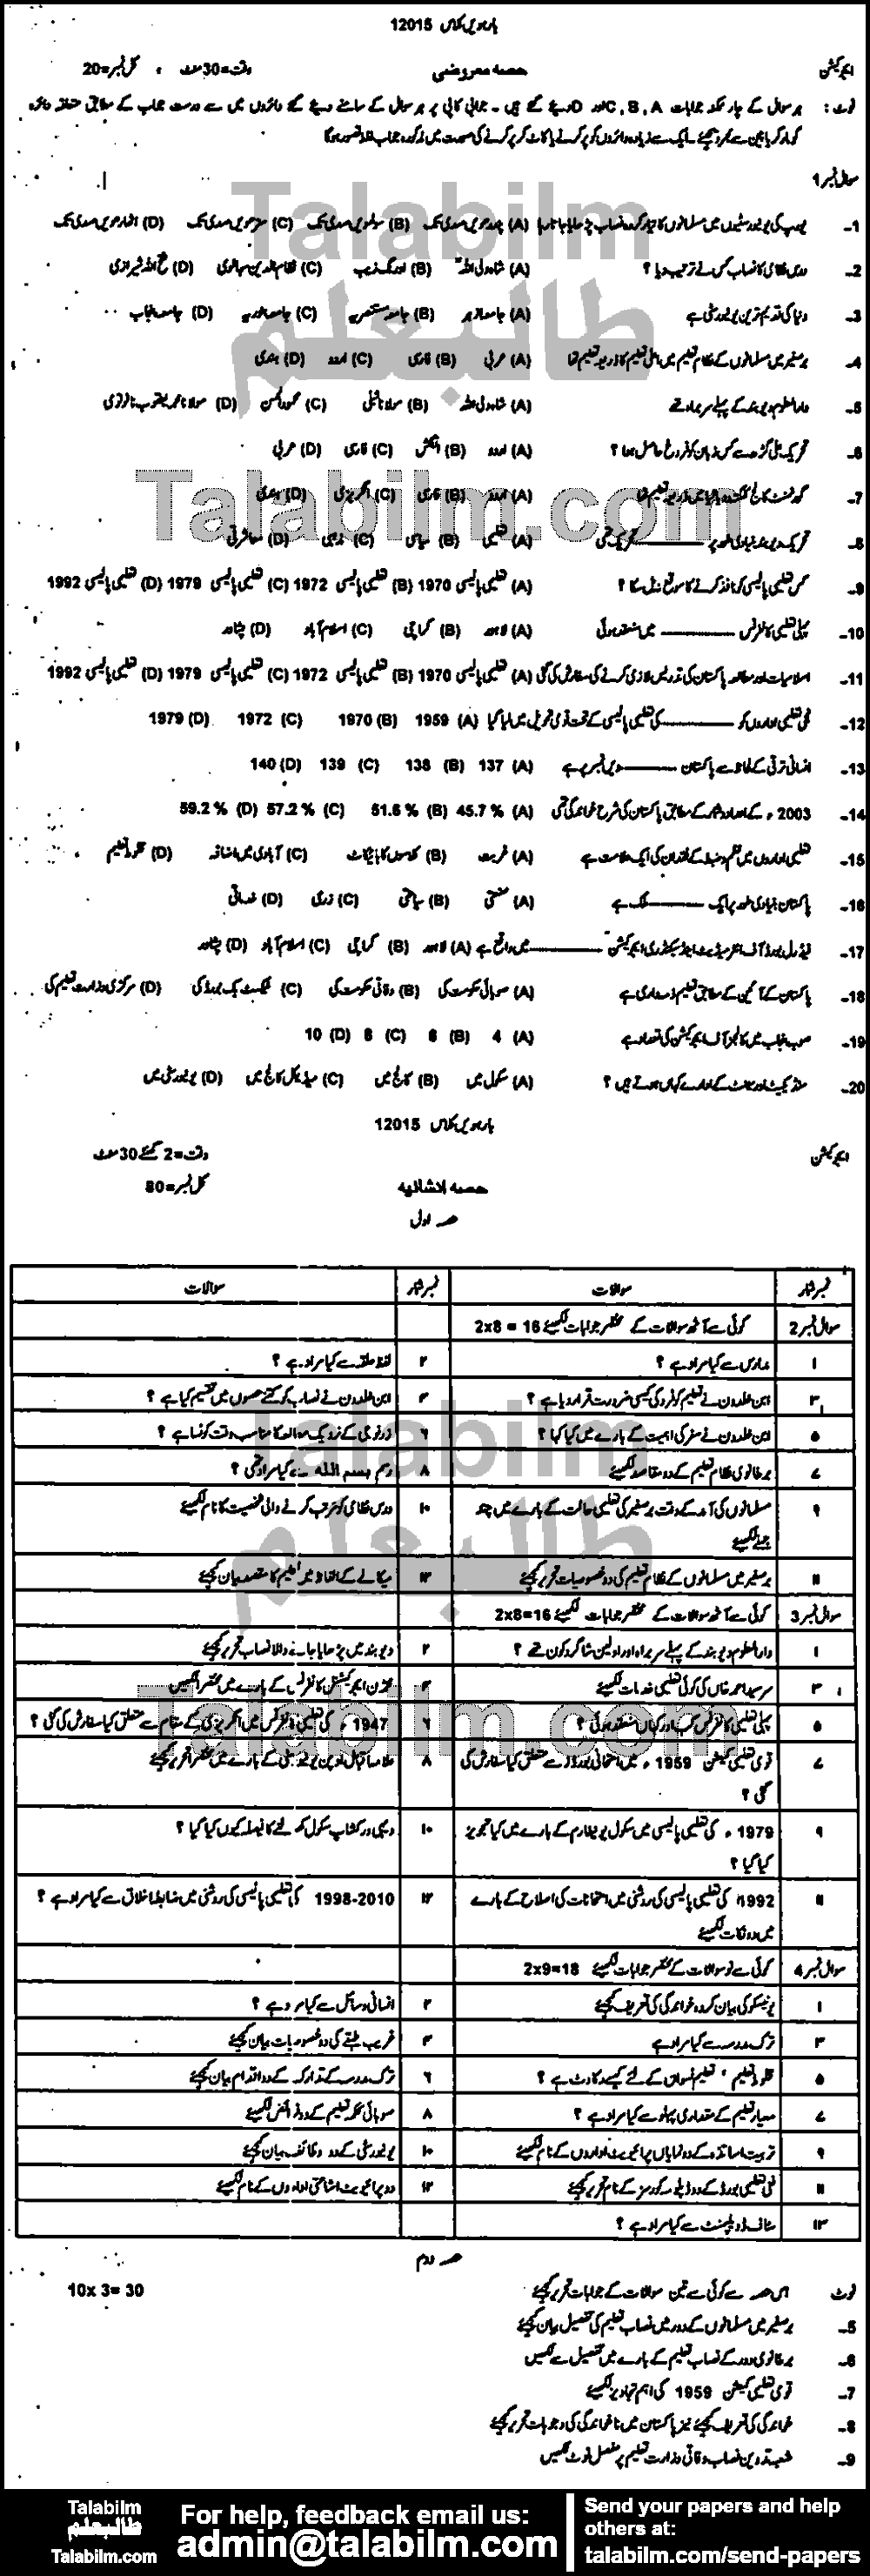 بارہویں کلاس 12015
ایجوکیشن حصہ معروضی وقت=30 منٹ ، کل نمبر=20
نوٹ: ہر سوال کے چار ممکنہ جوابات C, B, A اور D دیئے گئے ہیں۔ جوابی کاپی پر ہر سوال کے سامنے دیئے گئے دائروں میں سے درست جواب کے مطابق متعلقہ دائرہ
کو مارکر یا پین سے بھر دیجئے ایک سے زیادہ دائروں کو پر کرنے یا کاٹ کر پر کرنے کی صورت میں مذکورہ جواب غلط تصور ہوگا
سوال نمبر 1
1- یورپ کی یونیورسٹیوں میں مسلمانوں کا تیار کردہ نصاب پڑھایا جاتا رہا (A) پندرہویں صدی تک (B) سولہویں صدی تک (C) سترھویں صدی تک (D) اٹھارھویں صدی تک
2- درس نظامی کا نصاب کس نے ترتیب دیا ؟ (A) شاہ ولی اللہ (B) اورنگ زیب (C) نظام الدین سہالوی (D) فتح اللہ شیرازی
3- دنیا کی قدیم ترین یونیورسٹی ہے (A) جامعہ ازہر (B) جامعہ مستنصریہ (C) جامعہ نوریہ (D) جامعہ پنجاب
4- برصغیر میں مسلمانوں کے نظام تعلیم میں اعلیٰ تعلیم کا ذریعہ تعلیم تھا (A) عربی (B) فارسی (C) اردو (D) ہندی
5- دارالعلوم دیوبند کے پہلے سربراہ تھے (A) شاہ ولی اللہ (B) مولانا شبلی (C) محمود الحسن (D) مولانا محمد یعقوب نانوتوی
6- تحریک علی گڑھ سے کس زبان کو فروغ حاصل ہوا ؟ (A) اردو (B) انگلش (C) فارسی (D) عربی
7- گورنمنٹ کالج میں ذریعہ تعلیم تھا (A) اردو (B) فارسی (C) انگریزی (D) ہندی
8- تحریک دیوبند بنیادی طور پر ـــــــــ تحریک تھی (A) تعلیمی (B) سیاسی (C) مذہبی (D) معاشرتی
9- کس تعلیمی پالیسی کو نافذ کرنے کا موقع نہ مل سکا ؟ (A) تعلیمی پالیسی 1970 (B) تعلیمی پالیسی 1972 (C) تعلیمی پالیسی 1979 (D) تعلیمی پالیسی 1992
10- پہلی تعلیمی کانفرنس ـــــــــ میں منعقد ہوئی (A) لاہور (B) کراچی (C) اسلام آباد (D) پشاور
11- اسلامیات اور مطالعہ پاکستان کی تدریس لازمی کرنے کی سفارش کی گئی (A) تعلیمی پالیسی 1970 (B) تعلیمی پالیسی 1972 (C) تعلیمی پالیسی 1979 (D) تعلیمی پالیسی 1992
12- نجی تعلیمی اداروں کو ـــــــــ کی تعلیمی پالیسی کے تحت قومی تحویل میں لیا گیا (A) 1959 (B) 1970 (C) 1972 (D) 1979
13- انسانی ترقی کے لحاظ سے پاکستان ـــــــــ ویں نمبر پر ہے (A) 137 (B) 138 (C) 139 (D) 140
14- 2003ء کے اعداد و شمار کے مطابق پاکستان کی شرح خواندگی تھی (A) 45.7 % (B) 51.6 % (C) 57.2 % (D) 59.2 %
15- تعلیمی اداروں میں نظم و ضبط کے فقدان کی ایک علامت ہے (A) غربت (B) کلاسوں کا بائیکاٹ (C) آبادی میں اضافہ (D) مخلوط تعلیم
16- پاکستان بنیادی طور پر ایک ـــــــــ ملک ہے (A) صنعتی (B) سیاحتی (C) زرعی (D)
17- فیڈرل بورڈ آف انٹرمیڈیٹ اینڈ سیکنڈری ایجوکیشن ـــــــــ میں واقع ہے (A) لاہور (B) کراچی (C) اسلام آباد (D) پشاور
18- پاکستان کے آئین کے مطابق تعلیم ذمہ داری ہے (A) صوبائی حکومت کی (B) وفاقی حکومت کی (C) ٹیکسٹ بک بورڈ کی (D) مرکزی وزارت تعلیم کی
19- صوبہ پنجاب میں کالجز آف ایجوکیشن کی تعداد ہے (A) 4 (B) 6 (C) 8 (D) 10
20- سنڈیکیٹ اور سینٹ کے ادارے کہاں ہوتے ہیں ؟ (A) سکول میں (B) کالج میں (C) میڈیکل کالج میں (D) یونیورسٹی میں
بارہویں کلاس 12015
ایجوکیشن وقت=2 گھنٹے 30 منٹ
حصہ انشائیہ کل نمبر=80
حصہ اول
نمبر شمار سوالات نمبر شمار سوالات
سوال نمبر 2 کوئی سے آٹھ سوالات کے مختصر جوابات لکھیئے 2x8 = 16
۱ مدارس سے کیا مراد ہے ؟ ۲ لفظ حلقہ سے کیا مراد ہے ؟
۳ ابن خلدون نے تعلیم کو فرد کی کیسی ضرورت قرار دیا ہے ؟ ۴ ابن خلدون نے نصاب کو کتنے حصوں میں تقسیم کیا ہے ؟
۵ ابن خلدون نے سفر کی اہمیت کے بارے میں کیا کہا ؟ ۶ زرنوجی کے نزدیک مطالعہ کا مناسب وقت کونسا ہے ؟
۷ برطانوی نظام تعلیم کے دو مقاصد لکھیئے ۸ رسم بسم اللہ سے کیا مراد تھی ؟
۹ مسلمانوں کی آمد کے وقت برصغیر کی تعلیمی حالت کے بارے میں چند ۱۰ درس نظامی کو مرتب کرنے والی شخصیت کا نام لکھیئے
جملے لکھیئے
۱۱ برصغیر میں مسلمانوں کے نظام تعلیم کی دو خصوصیات تحریر کیجئے ۱۲ میکالے کے الفاظ میں تعلیم کا مقصد بیان کیجئے
سوال نمبر 3 کوئی سے آٹھ سوالات کے مختصر جوابات لکھیئے 2x8=16
۱ دارالعلوم دیوبند کے پہلے سربراہ اور اولین شاگرد کون تھے ؟ ۲ دیوبند میں پڑھایا جانے والا نصاب تحریر کیجئے
۳ سرسید احمد خاں کی کوئی تعلیمی خدمات لکھیئے ۴ محمڈن ایجوکیشنل کانفرنس کے بارے میں مختصر لکھیں
۵ پہلی تعلیمی کانفرنس کب اور کہاں منعقد ہوئی ؟ ۶ 1947ء کی تعلیمی کانفرنس میں انگریزی کے مقام سے متعلق کیا سفارش کی گئی ؟
۷ قومی تعلیمی کمیشن 1959ء میں امتحانی بورڈز سے متعلق کیا سفارش کی ۸ علامہ اقبال اوپن یونیورسٹی کے بارے میں مختصر تحریر کیجئے
گئی ؟
۹ 1979ء کی تعلیمی پالیسی میں سکول یونیفارم کے بارے میں کیا تجویز ۱۰ دیہی ورکشاپ سکول کھولنے کا فیصلہ کیوں کیا گیا ؟
کیا گیا ؟
۱۱ 1992 کی تعلیمی پالیسی کی روشنی میں امتحانات کی اصلاح کے بارے ۱۲ 1998-2010 کی تعلیمی پالیسی کی روشنی میں ضابطہ اخلاق سے کیا مراد ہے ؟
میں دو نکات لکھیئے
سوال نمبر 4 کوئی سے نو سوالات کے مختصر جوابات لکھیئے 2x9=18
۱ یونیسکو کی بیان کردہ خواندگی کی تعریف لکھیئے ۲ انسانی وسائل سے کیا مراد ہے ؟
۳ ترک مدرسہ سے کیا مراد ہے ۴ غریب طبقے کی دو خصوصیات بیان کیجئے
۵ مخلوط تعلیم ' تعلیم نسواں کے لئے کیسے رکاوٹ ہے ؟ ۶ ترک مدرسہ کے تدارک کے دو اقدام بیان کیجئے
۷ معیار تعلیم کے مقداری پہلو سے کیا مراد ہے ؟ ۸ صوبائی محکمہ تعلیم کے دو فرائض لکھیئے
۹ تربیت اساتذہ کے دو نمایاں پرائیویٹ اداروں کے نام لکھیئے ۱۰ یونیورسٹی کے دو وظائف بیان کیجئے
۱۱ فنی تعلیمی بورڈ کے دو ڈپلومہ کورسز کے نام تحریر کیجئے ۱۲ دو پرائیویٹ اشاعتی اداروں کے نام لکھیئے
۱۳ سٹاف ڈویلپمنٹ سے کیا مراد ہے ؟
حصہ دوم
نوٹ اس حصہ سے کوئی سے تین سوالات کے جوابات تحریر کیجئے 10x 3= 30
5- برصغیر میں مسلمانوں کے دور میں نصاب تعلیم کی تفصیل بیان کیجئے
6- برطانوی دور کے نصاب تعلیم کے بارے میں تفصیل سے لکھیں
7- قومی تعلیمی کمیشن 1959 کی اہم تجاویز لکھیئے
8- خواندگی کی تعریف کیجئے نیز پاکستان میں ناخواندگی کی وجوہات تحریر کیجئے
9- شعبہ تدوین نصاب وفاقی وزارت تعلیم پر مفصل نوٹ لکھیں
Talabilm
طالبعلم
Talabilm.com
Talabilm
طالبعلم
Talabilm.com
Talabilm
طالبعلم
Talabilm.com
For help, feedback email us:
admin@talabilm.com
Send your papers and help
others at:
talabilm.com/send-papers